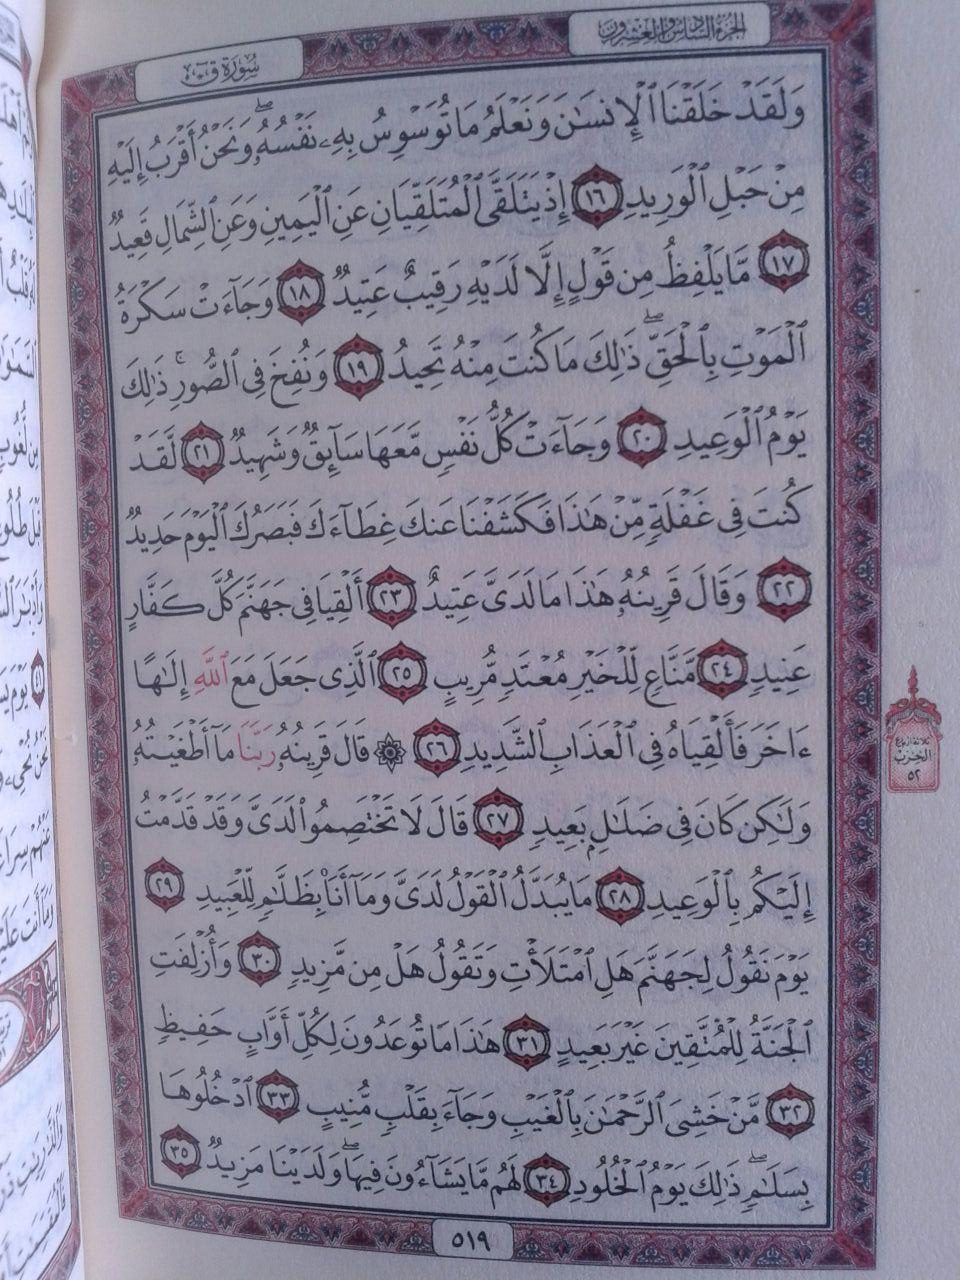 الجزء السادس والعشرون
سورة ق
وَلَقَدْ خَلَقْنَا ٱلْإِنسَٰنَ وَنَعْلَمُ مَا تُوَسْوِسُ بِهِۦ نَفْسُهُۥ ۖ وَنَحْنُ أَقْرَبُ إِلَيْهِ
مِنْ حَبْلِ ٱلْوَرِيدِ ١٦ إِذْ يَتَلَقَّى ٱلْمُتَلَقِّيَانِ عَنِ ٱلْيَمِينِ وَعَنِ ٱلشِّمَالِ قَعِيدٌ
١٧ مَّا يَلْفِظُ مِن قَوْلٍ إِلَّا لَدَيْهِ رَقِيبٌ عَتِيدٌ ١٨ وَجَآءَتْ سَكْرَةُ
ٱلْمَوْتِ بِٱلْحَقِّ ۖ ذَٰلِكَ مَا كُنتَ مِنْهُ تَحِيدُ ١٩ وَنُفِخَ فِى ٱلصُّورِ ۚ ذَٰلِكَ
يَوْمُ ٱلْوَعِيدِ ٢٠ وَجَآءَتْ كُلُّ نَفْسٍ مَّعَهَا سَآئِقٌ وَشَهِيدٌ ٢١ لَّقَدْ
كُنتَ فِى غَفْلَةٍ مِّنْ هَٰذَا فَكَشَفْنَا عَنكَ غِطَآءَكَ فَبَصَرُكَ ٱلْيَوْمَ حَدِيدٌ
٢٢ وَقَالَ قَرِينُهُۥ هَٰذَا مَا لَدَىَّ عَتِيدٌ ٢٣ أَلْقِيَا فِى جَهَنَّمَ كُلَّ كَفَّارٍ
عَنِيدٍ ٢٤ مَّنَّاعٍ لِّلْخَيْرِ مُعْتَدٍ مُّرِيبٍ ٢٥ ٱلَّذِى جَعَلَ مَعَ ٱللَّهِ إِلَٰهًا
ءَاخَرَ فَأَلْقِيَاهُ فِى ٱلْعَذَابِ ٱلشَّدِيدِ ٢٦ ۞ قَالَ قَرِينُهُۥ رَبَّنَا مَآ أَطْغَيْتُهُۥ
وَلَٰكِن كَانَ فِى ضَلَٰلٍۭ بَعِيدٍ ٢٧ قَالَ لَا تَخْتَصِمُوا۟ لَدَىَّ وَقَدْ قَدَّمْتُ
إِلَيْكُم بِٱلْوَعِيدِ ٢٨ مَا يُبَدَّلُ ٱلْقَوْلُ لَدَىَّ وَمَآ أَنَا۠ بِظَلَّٰمٍ لِّلْعَبِيدِ ٢٩
يَوْمَ نَقُولُ لِجَهَنَّمَ هَلِ ٱمْتَلَأْتِ وَتَقُولُ هَلْ مِن مَّزِيدٍ ٣٠ وَأُزْلِفَتِ
ٱلْجَنَّةُ لِلْمُتَّقِينَ غَيْرَ بَعِيدٍ ٣١ هَٰذَا مَا تُوعَدُونَ لِكُلِّ أَوَّابٍ حَفِيظٍ
٣٢ مَّنْ خَشِىَ ٱلرَّحْمَٰنَ بِٱلْغَيْبِ وَجَآءَ بِقَلْبٍ مُّنِيبٍ ٣٣ ٱدْخُلُوهَا
بِسَلَٰمٍ ۖ ذَٰلِكَ يَوْمُ ٱلْخُلُودِ ٣٤ لَهُم مَّا يَشَآءُونَ فِيهَا ۖ وَلَدَيْنَا مَزِيدٌ ٣٥
ثلاثة أرباع
الحزب
٥٢
٥١٩